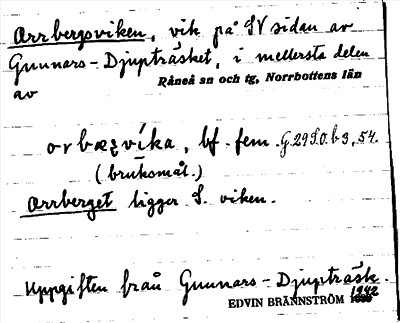 Arrbergsviken, vik på SV sidan av
Gunnars-Djupträsket, i mellersta delen
Råneå sn och tg, Norrbottens län
av
orbæʒvíka, bf. fem. G 29 S.O. b 3, 54.
(bruksmål.)
Arrberget ligger S. viken.
Uppgiften från Gunnars-Djupträsk.
EDVIN BRÄNNSTRÖM 1942